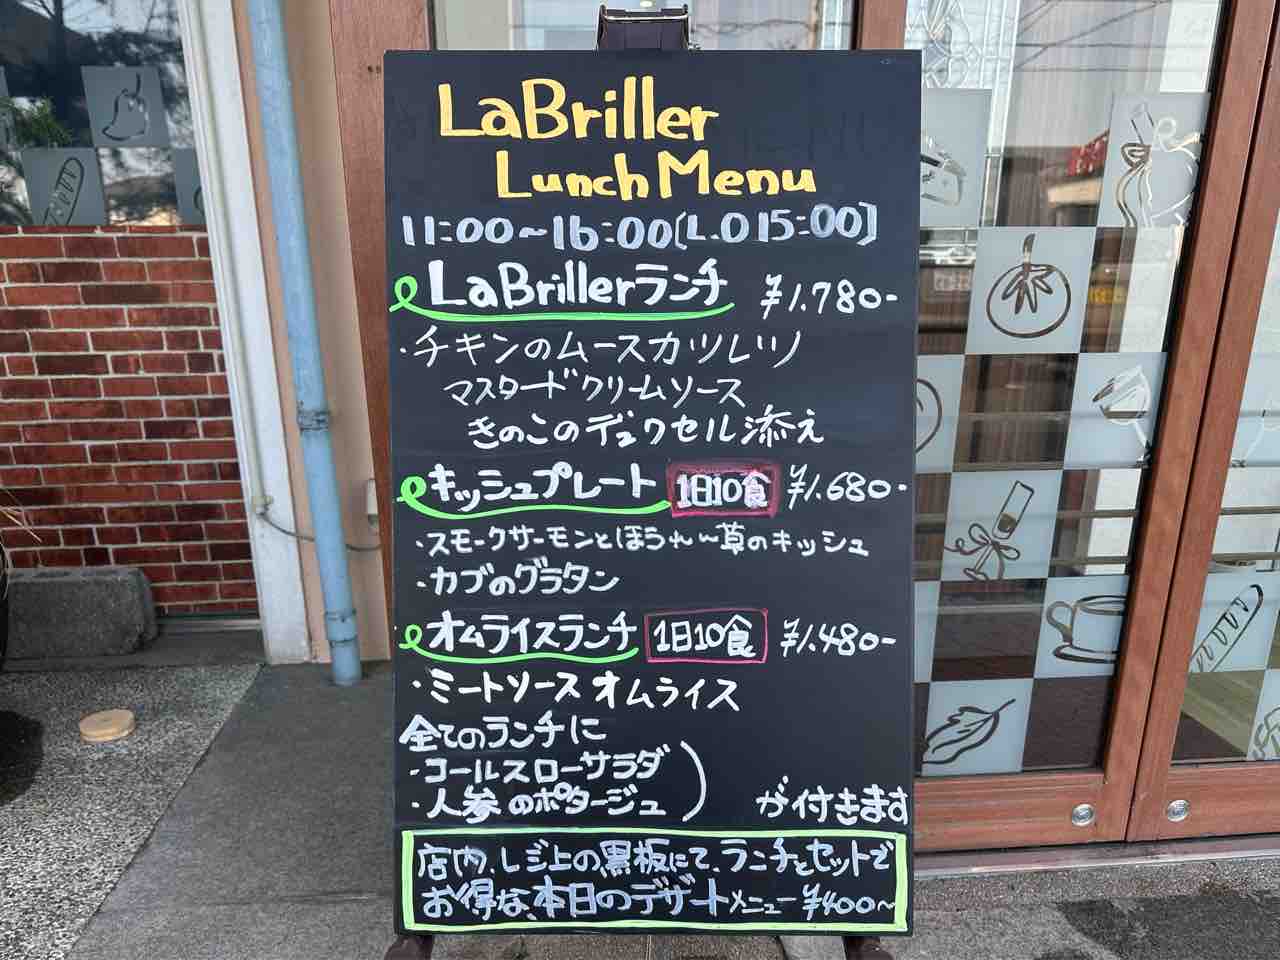 LaBriller
Lunch Menu
11:00~16:00[L.O 15:00]
LaBrillerランチ ¥1.780-
・チキンのムースカツレツ
マスタードクリームソース
きのこのデュクセル添え
キッシュプレート 1日10食 ¥1.680-
・スモークサーモンとほうれん草のキッシュ
・カブのグラタン
オムライスランチ 1日10食 ¥1.480-
・ミートソースオムライス
全てのランチに
・コールスローサラダ
・人参のポタージュ が付きます
店内、レジ上の黒板にて、ランチとセットで
お得な、本日のデザートメニュー¥400~